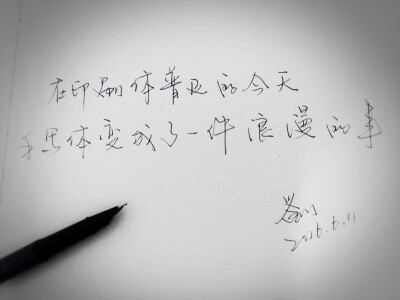 在印刷体普及的今天
手写体变成了一件浪漫的事
2016.6.11